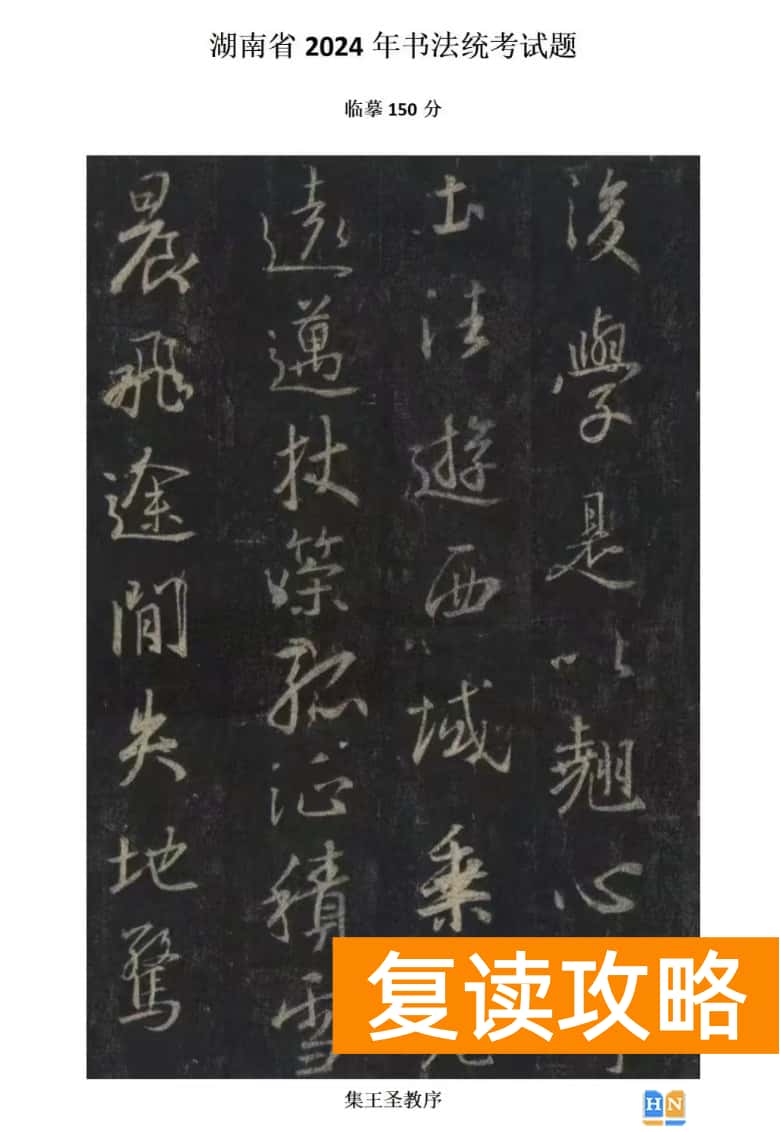 湖南省 2024 年书法统考试题
临摹 150 分
後學是以翹心
土法遊西域乗
遠邁杖策孤征積雪
晨飛途間失地驚
复读攻略
集王圣教序
HN